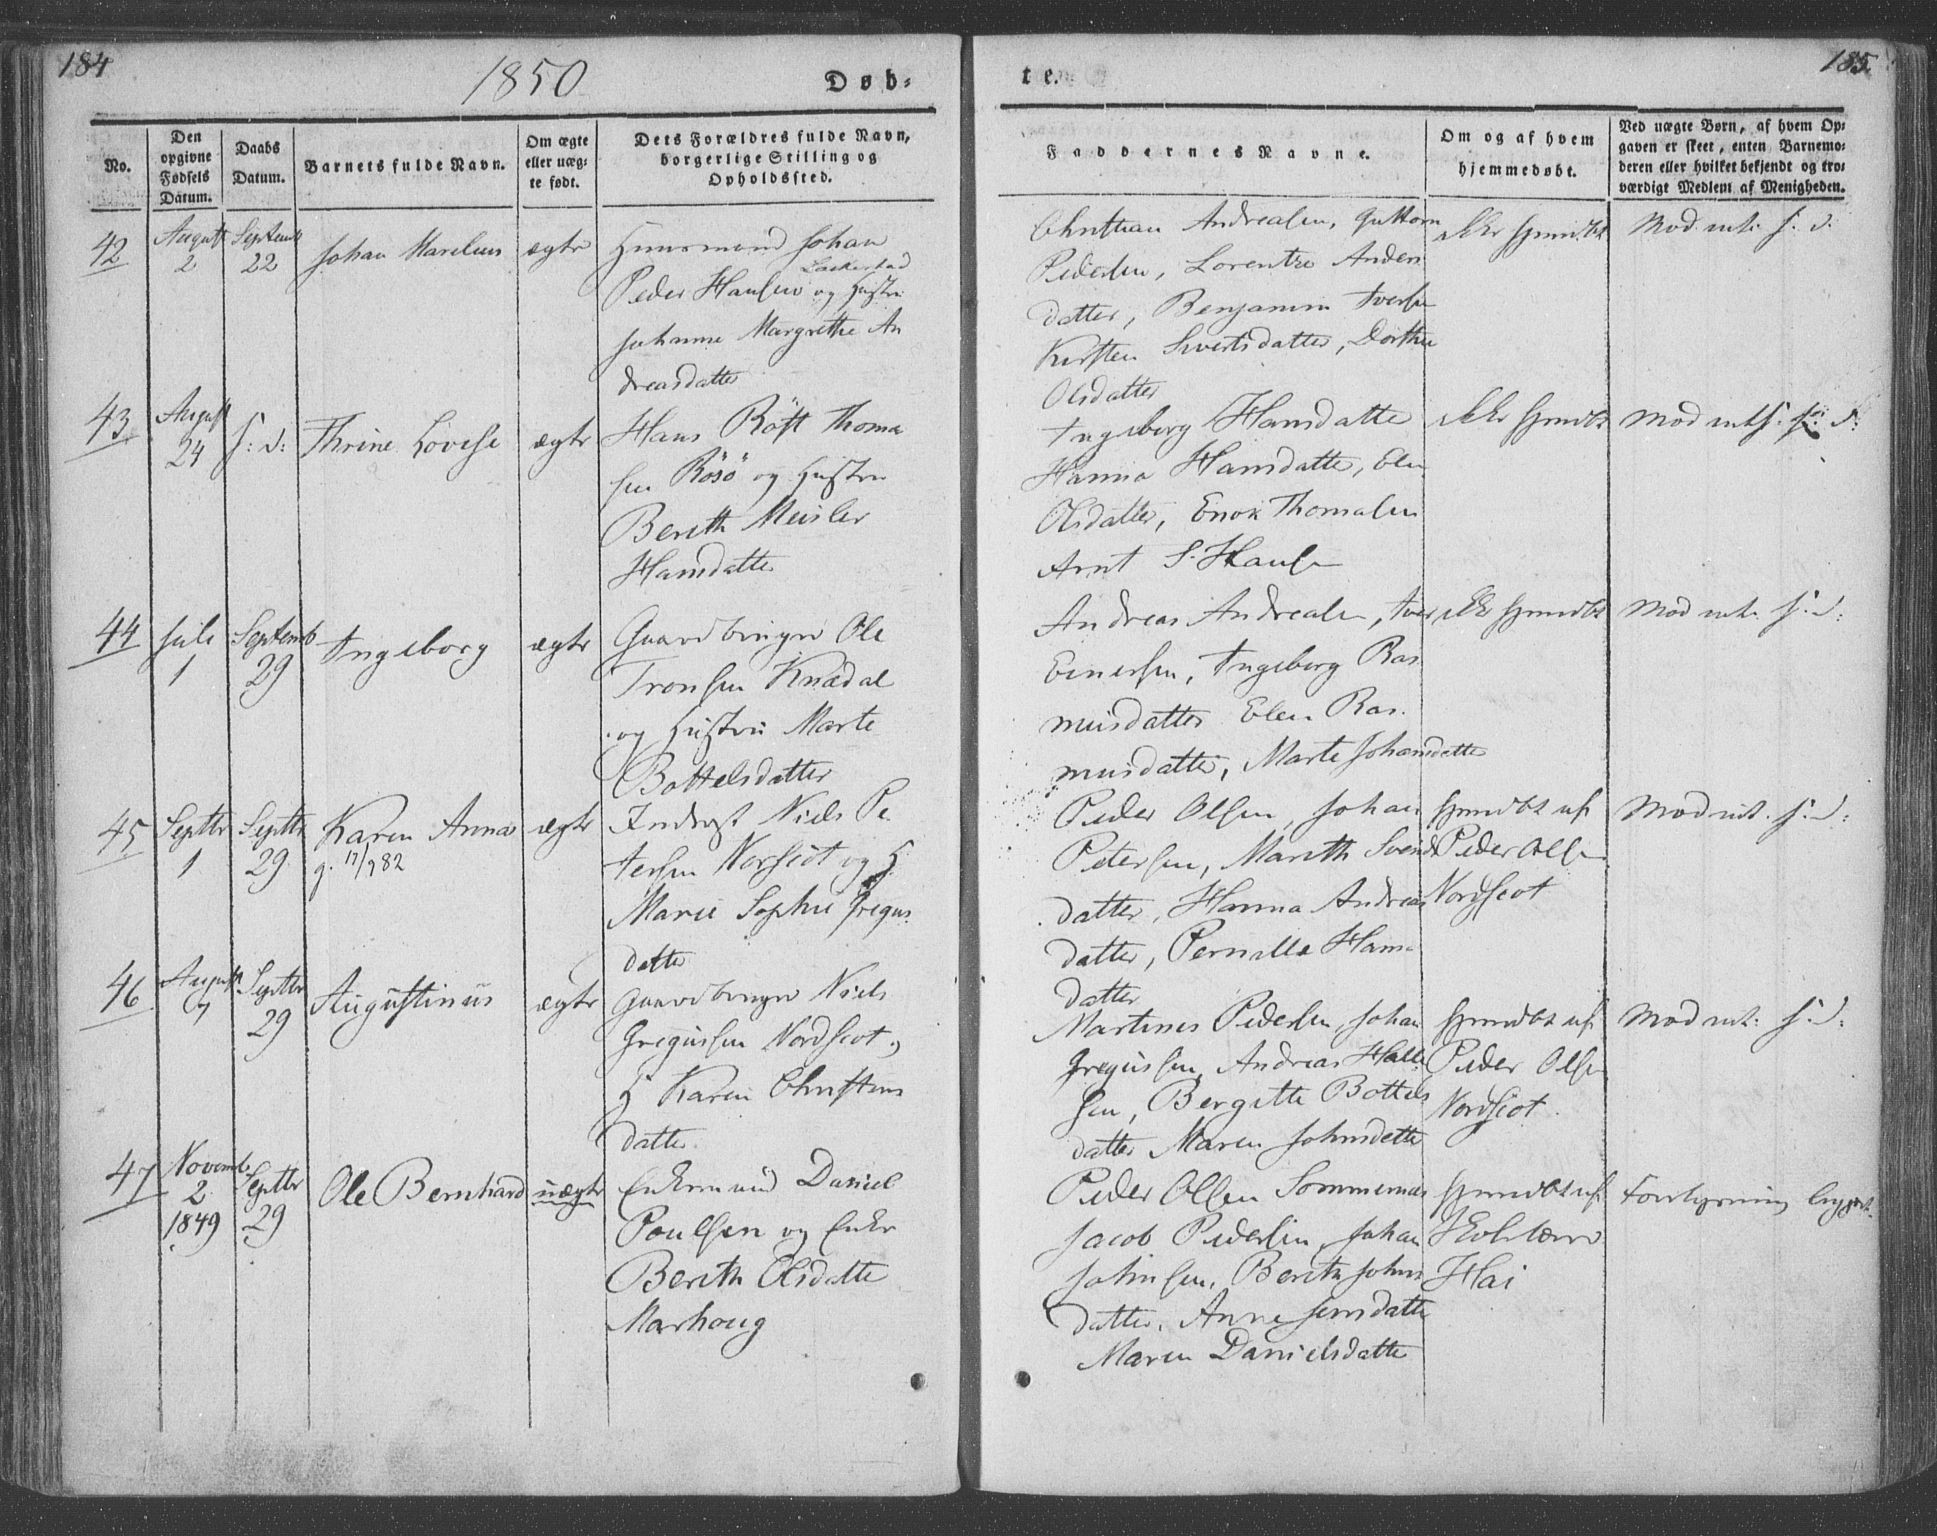 184
1850
Døb-
te.
185.
No.
Den opgivne Fødsels Datum.
Daabs Datum.
Barnets fulde Navn.
Om ægte eller uæg-te født.
Dets Forældres fulde Navn, borgerlige Stilling og Opholdssted.
Faddernes Navne.
Om og af hvem hjemmedøbt.
Ved uægte Børn, af hvem Op-gaven er skeet, enten Barnemo-deren eller hvilket bekjendt og tro-værdigt Medlem af Menigheden.
42
August 2
Septemb 22
Johan Marelius
ægte
Huusmand Johan
Peder Hansen og Hustru
Johanne Margrethe An
dreasdatter
Christian Andreasen, Guttorm
Pedersen, Lorentze Anders
datter, Benjamin Iversen
Kirsten Sivertsdatter, Dorthea
Olsdatter
ikke hjmdbt
Mod. int. s. d.
43
August 24
s. d.
Thrine Lovise
ægte
Hans Röst Thoma
sen Rösö og Hustru
Bereth Meisler
Hansdatter
Ingeborg Hansdatte
Hanna Hansdatte, Elen
Olsdatter, Enok Thomasen
Arnt S. Hansen
ikke hjmdbt
Mod int. s. d.
44
Juli 1
Septemb 29
Ingeborg
ægte
Gaardbruger Ole
Tronsen Knædal
og Hustru Marte
Bottelsdatter
Andreas Andreasen, Iver
Einersen, Ingeborg Ras
musdatter Elen Ras
musdatter, Marte Johansdatter
ikke hjmdbt
Mod int. s. d.
45
Septbr 1
Septbr 29
Karen Anna
g. 17/982
ægte
Inderst Niels Pe
tersen Nordscot og H.
Marie Sophie Gregus
datter
Peder Olsen, Johan
Petersen, Mareth Svends
datter, Hanna Andreas
datter, Pernille Hans
datter
hjmdbt af
Peder Olsen
Nordscot
Mod int. s. d.
46
August 7
Septbr 29
Augustinus
ægte
Gaardbruger Niels
Gregussen Nordscot og
H. Karen Christens
datter
Martines Pedersen, Johan
Gregussen, Andreas Hall
sen, Bergitte Bottels
datter Maren Johnsdatte
hjmdbt af
Peder Olsen
Nordscot
Mod int. s. d.
47
Novemb 2 1849
Septbr 29
Ole Bernhard
uægte
Enkemand Daniel
Poulsen og Enke
Bereth Olsdatte
Marhoug
Peder Olsen Sommernæs
Jacob Pedersen, Johan
Johnsen, Bereth Johns
datter, Anne Jensdatte
Maren Danielsdatte
hjmdbt af
Skolelærer
Hai